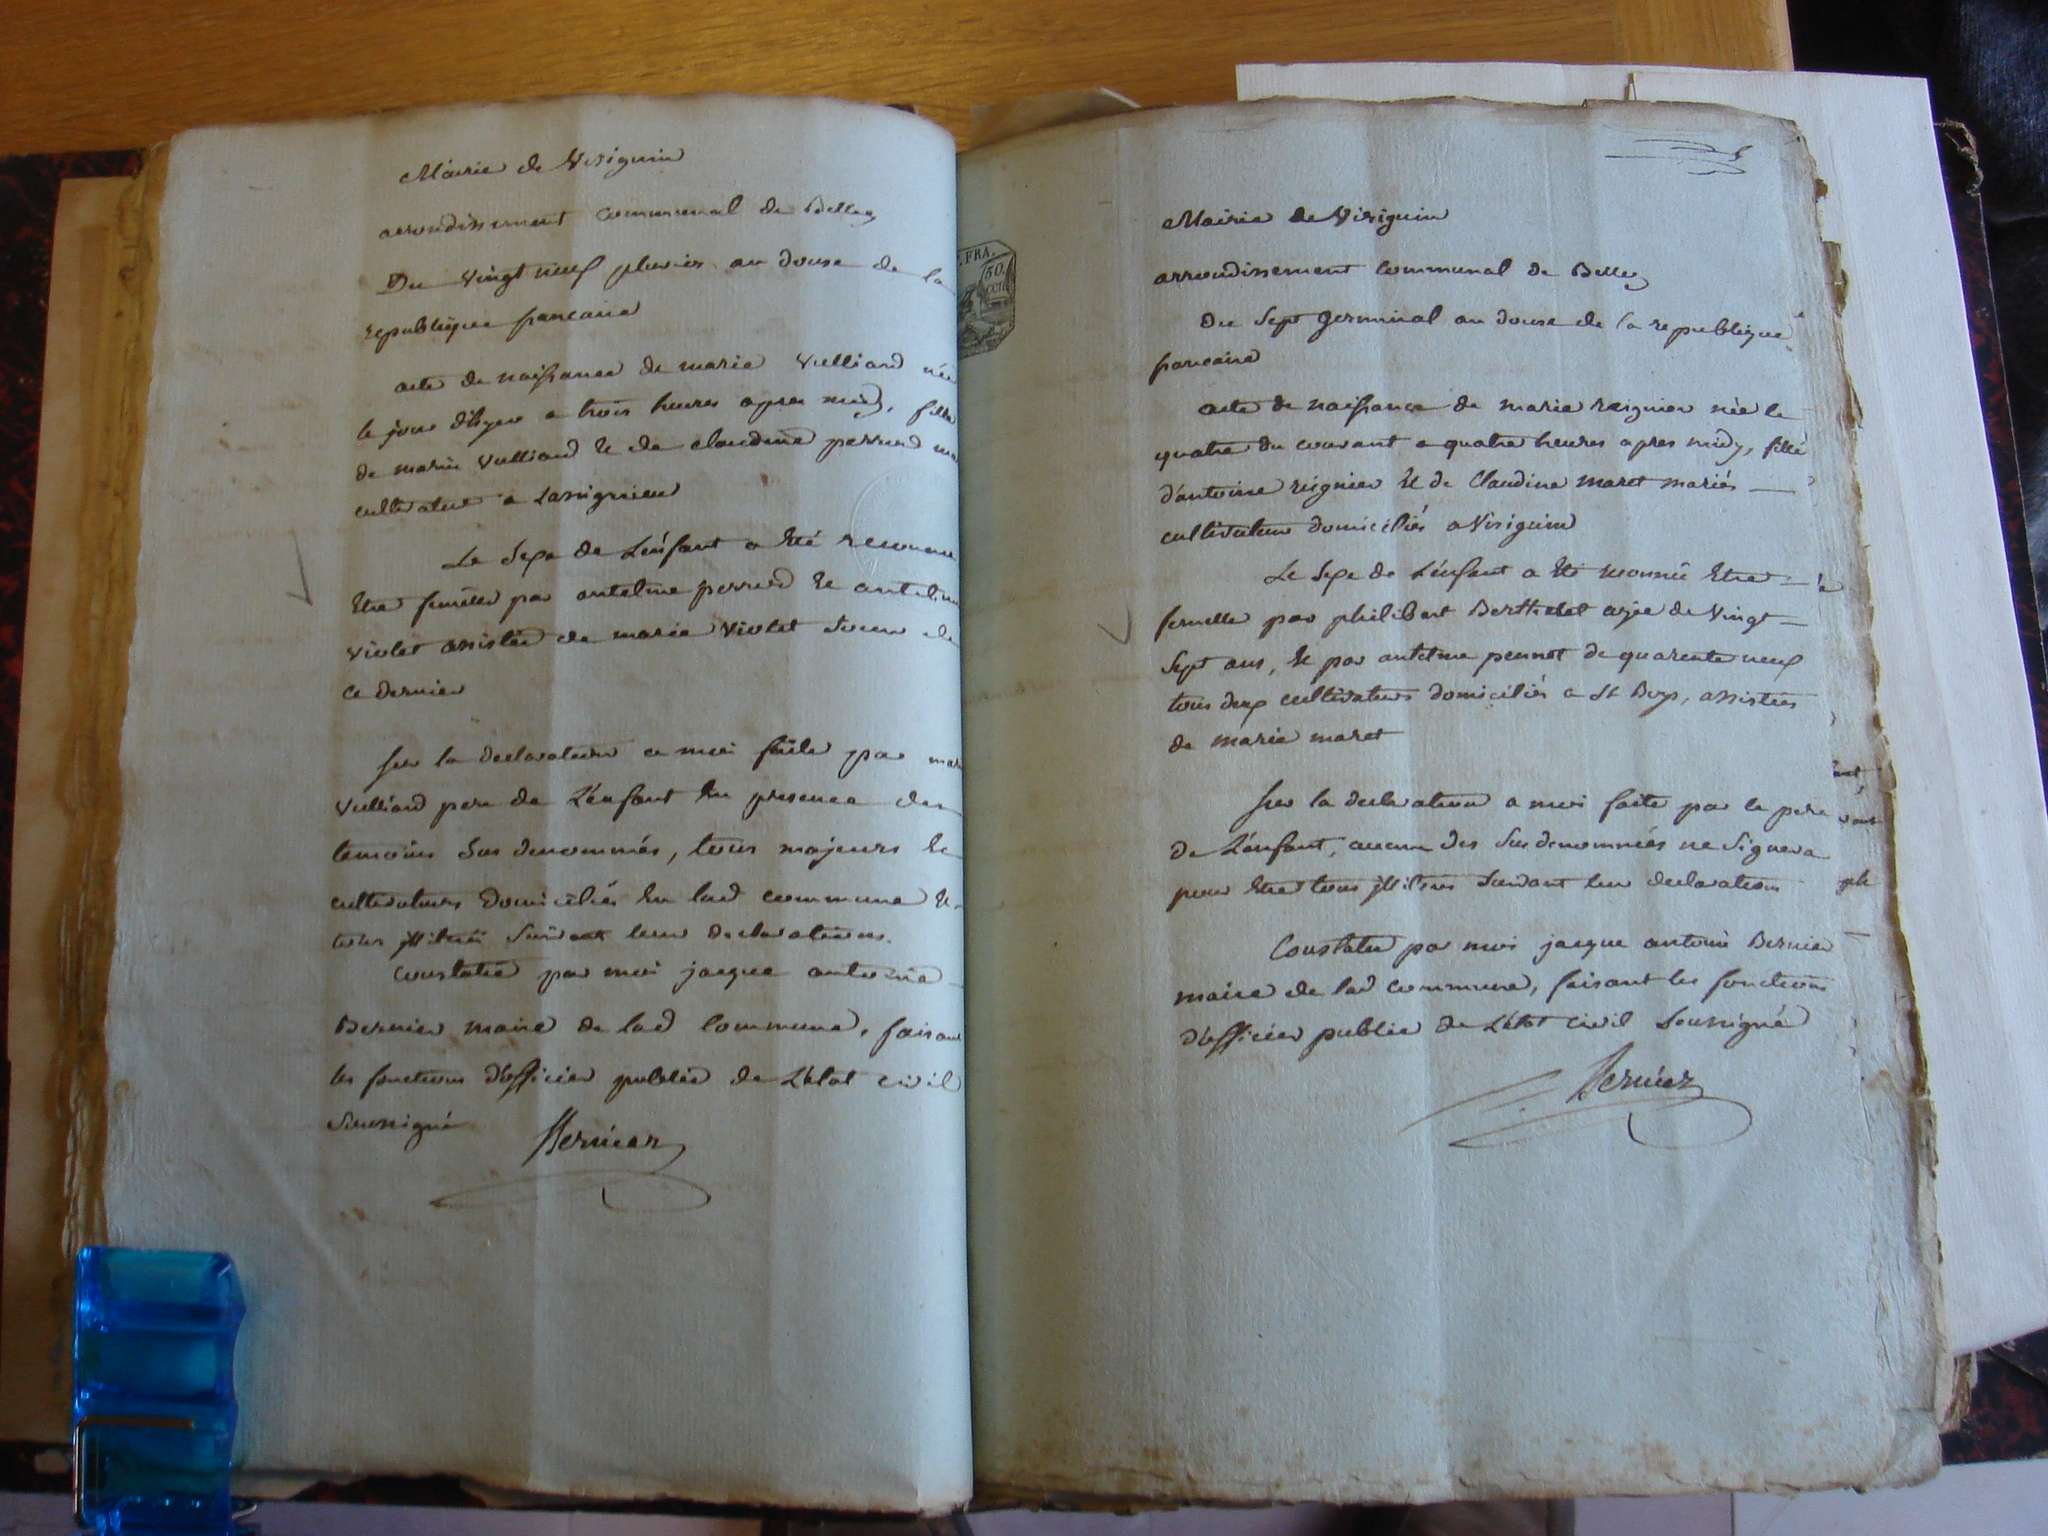 Mairie de Virignin
arrondissement communal de Belley
Du vingt neuf pluvios an douse de la
republique francaise
acte de naissance de marie Vulliard née
le jour d'hyer a trois heures apres midy, fille
de marin Vulliard et de claudine perrud
cultivateur a Lassignieu
Le Sexe de L'enfant a été reconnue
Etre femelle par antelme perrud et antelme
Violet assistés de marie Violet Soeur de
ce dernier
Sur la declaration a moi faite par
Vulliard pere de L'énfant En presence des
temoins Sus denommés, tous majeurs et
cultivateurs domiciliés En lad commune et
tous jllitrés Suivant leur declarations.
Constatée par moi jacque antoine
Bernier maire de lad Commune, faisant
les fonctions d'officier public de L'état civil
Soussigné Bernier
. FRA.
50.
Mairie de Virignin
arrondissement Communal de Belley
Du Sept Germinal an douse de la republique
francaise
acte de naissance de marie reignier née le
quatre du courant a quatre heures apres midy, fille
d'antoine reignier et de Claudine maret mariés
cultivateurs domiciliés a Virignin
Le Sexe de L'énfant a été reconnu Etre
femelle par philibert Berthelet agée de Vingt
Sept ans, et par antelme pennot de quarente neuf
tous deux cultivateurs domiciliés a St Boys, assistés
de marie maret
Sur la declaration a moi faite par le pere
de L'énfant, aucun des Sus denommés ne Signera
pour Etre tous jllitrés Suivant leur declarations
Constatée par moi jacque antoine Bernier
maire de lad commune, faisant les fonctions
d'officier public de L'état Civil Soussigné
Bernier